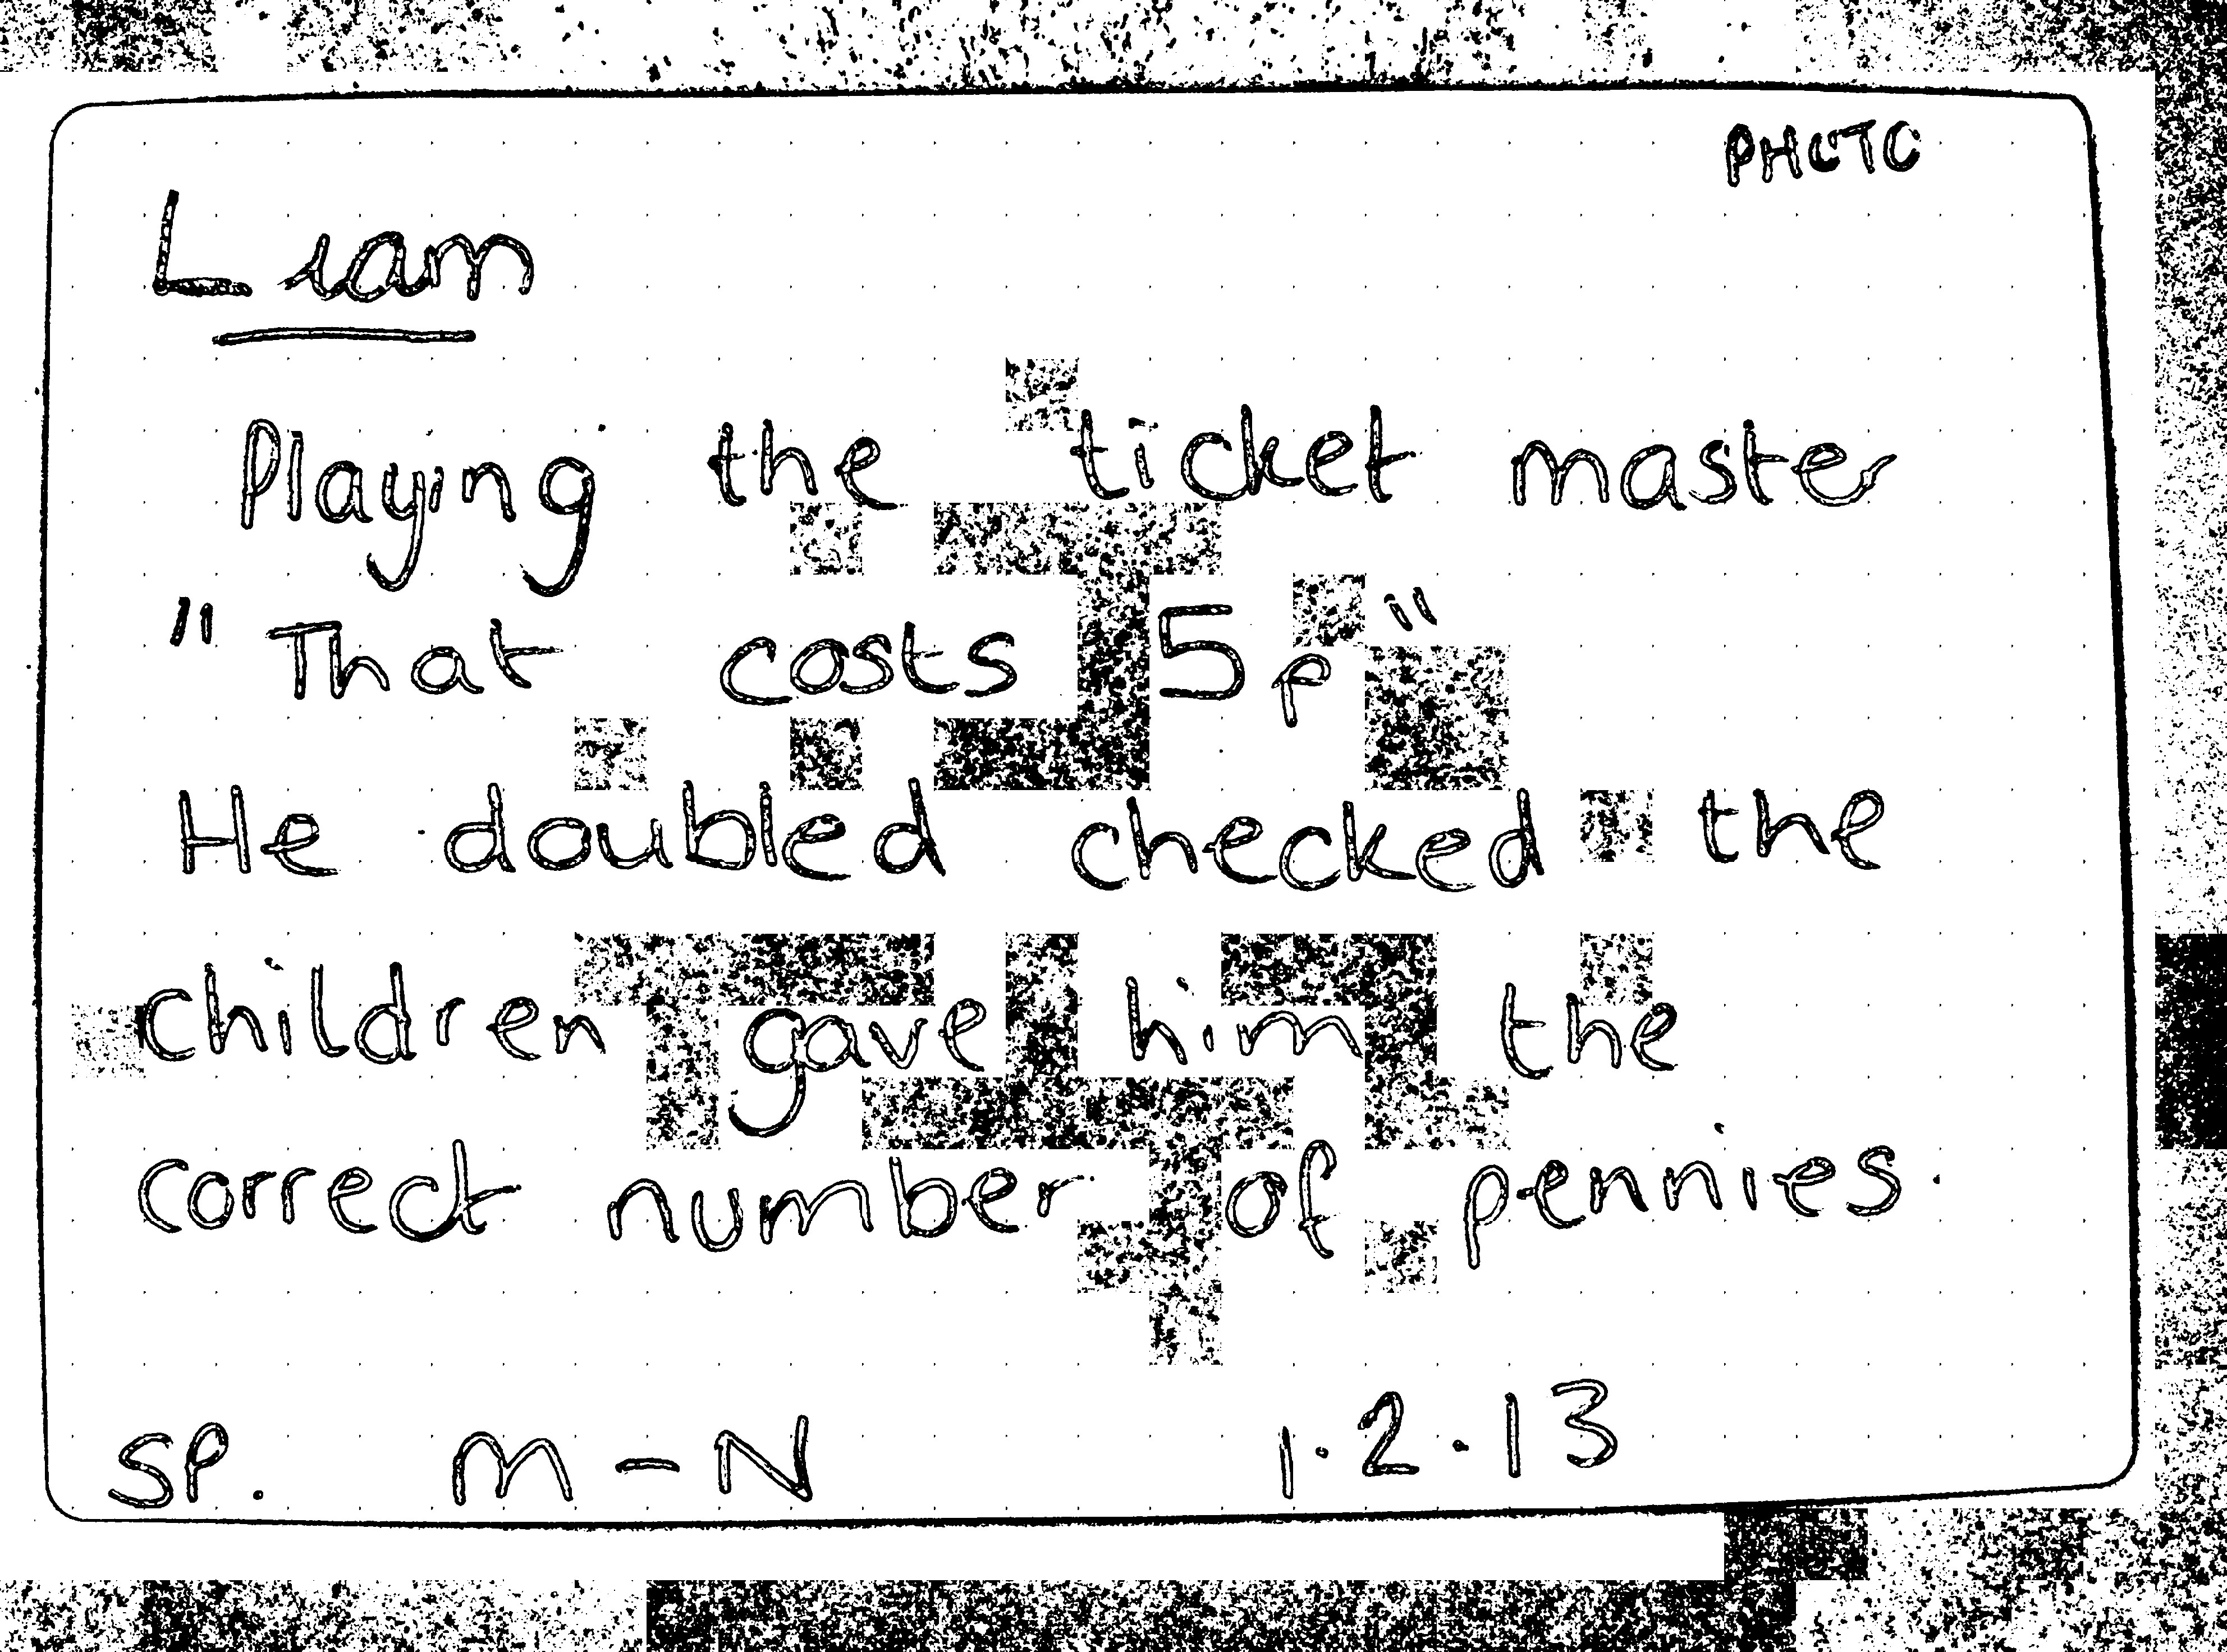 PHOTO
Liam
Playing the ticket master
"That costs 5p"
He doubled checked the
children gave him the
correct number of pennies.
SP. M-N 1.2.13